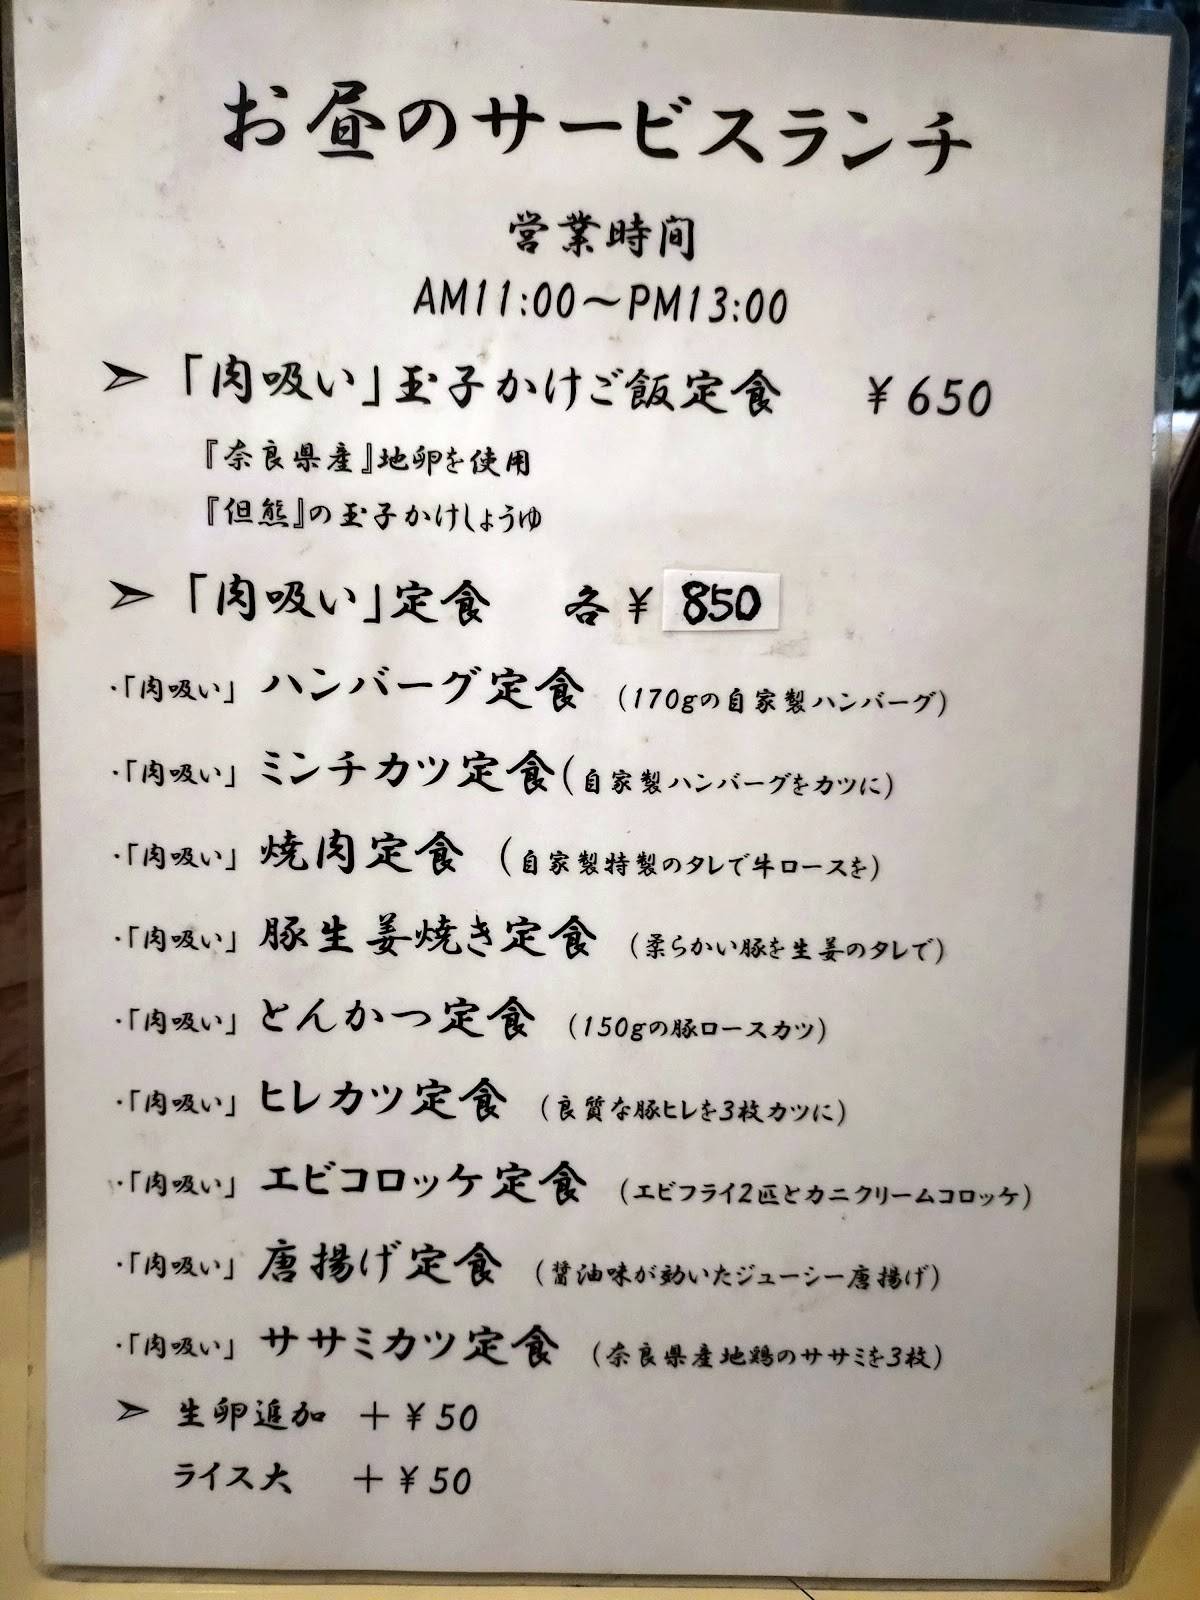 お昼のサービスランチ
営業時間
AM11:00～PM13:00
➢「肉吸い」玉子かけご飯定食 ￥650
『奈良県産』地卵を使用
『但熊』の玉子かけしょうゆ
➢「肉吸い」定食 各￥850
・「肉吸い」ハンバーグ定食 (170gの自家製ハンバーグ)
・「肉吸い」ミンチカツ定食(自家製ハンバーグをカツに)
・「肉吸い」焼肉定食 (自家製特製のタレで牛ロースを)
・「肉吸い」豚生姜焼き定食 (柔らかい豚を生姜のタレで)
・「肉吸い」とんかつ定食 (150gの豚ロースカツ)
・「肉吸い」ヒレカツ定食 (良質な豚ヒレを3枚カツに)
・「肉吸い」エビコロッケ定食 (エビフライ2匹とカニクリームコロッケ)
・「肉吸い」唐揚げ定食 (醤油味が効いたジューシー唐揚げ)
・「肉吸い」ササミカツ定食 (奈良県産地鶏のササミを3枚)
➢ 生卵追加 ＋￥50
ライス大 ＋￥50